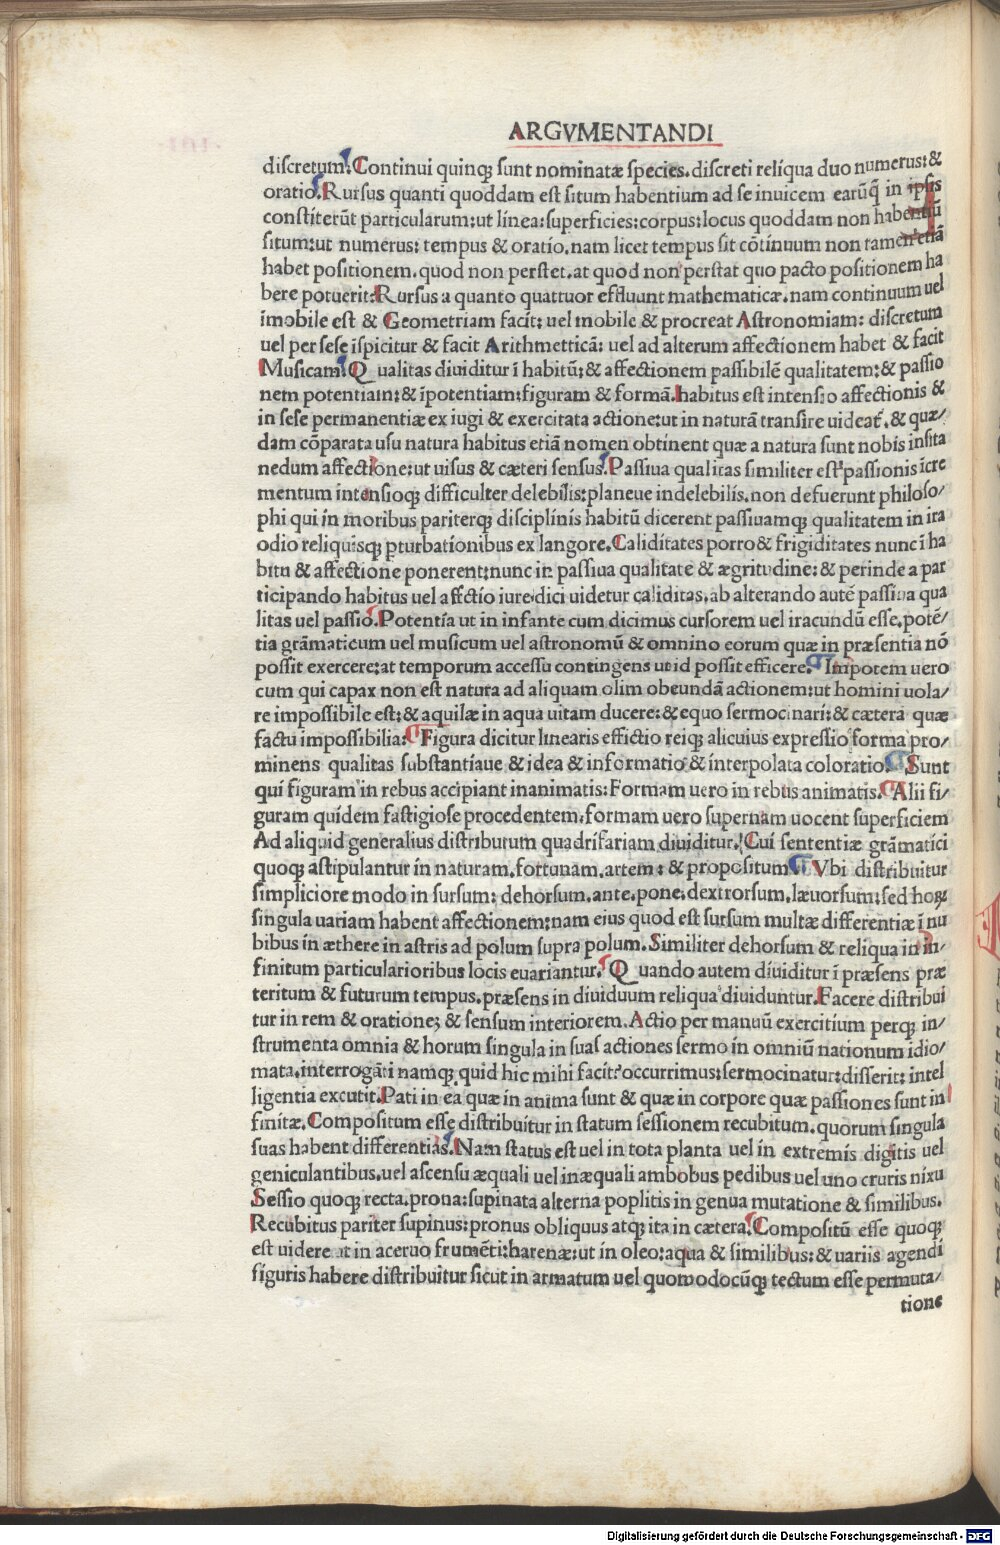 ARGVMENTANDI
discretum. Continui quinqꝫ sunt nominatæ species. discreti reliqua duo numerus: &
oratio. Rursus quanti quoddam est situm habentium ad se inuicem earūq̄ in ipsis
constiterūt particularum: ut linea: superficies: corpus: locus quoddam non habentiū
situm: ut numerus: tempus & oratio. nam licet tempus sit cōtinuum non tamen etiā
habet positionem. quod non perstet. at quod non perstat quo pacto positionem ha
bere potuerit: Rursus a quanto quattuor effluunt mathematicæ. nam continuum uel
imobile est & Geometriam facit: uel mobile & procreat Astronomiam: discretum
uel per sese īspicitur & facit Arithmetticā: uel ad alterum affectionem habet & facit
Musicam. Qualitas diuiditur ī habitū: & affectionem passibilē qualitatem: & passio
nem potentiam: & īpotentiam: figuram & formā. habitus est intensio affectionis &
in sese permanentiæ ex iugi & exercitata actione: ut in naturā transire uideat̄. & quæ/
dam cōparata usu natura habitus etiā nomen obtinent quæ a natura sunt nobis insita
nedum affectione: ut uisus & cæteri sensus. Passiua qualitas similiter est passionis īcre
mentum intensioqꝫ difficulter delebilis: planeue indelebilis. non defuerunt philoso/
phi qui in moribus pariterqꝫ disciplinis habitū dicerent passiuamqꝫ qualitatem in ira
odio reliquisqꝫ ꝑturbationibus ex langore. Caliditates porro & frigiditates nunc ī ha
bitu & affectione ponerent: nunc in passiua qualitate & ægritudine: & perinde a par
ticipando habitus uel affectio iure dici uidetur caliditas. ab alterando autē passiua qua
litas uel passio. Potentia ut in infante cum dicimus cursorem uel iracundū esse. potē/
tia grāmaticum uel musicum uel astronomū & omnino eorum quæ in præsentia nō
possit exercere: at temporum accessu contingens ut id possit efficere. Impotem uero
cum qui capax non est natura ad aliquam olim obeundā actionem: ut homini uola/
re impossibile est: & aquilæ in aqua uitam ducere: & equo sermocinari: & cætera quæ
factu impossibilia: Figura dicitur linearis effictio reiqꝫ alicuius expressio forma pro/
minens qualitas substantiaue & idea & informatio & interpolata coloratio. Sunt
qui figuram in rebus accipiant inanimatis: Formam uero in rebus animatis. Alii fi/
guram quidem fastigiose procedentem. formam uero supernam uocent superficiem
Ad aliquid generalius distributum quadrifariam diuiditur. Cui sententiæ grāmatici
quoqꝫ astipulantur in naturam. fortunam. artem: & propositum. Vbi distribuitur
simpliciore modo in sursum: dehorsum. ante. pone. dextrorsum. læuorsum: sed hoꝝ
singula uariam habent affectionem: nam eius quod est sursum multæ differentiæ ī nu
bibus in æthere in astris ad polum supra polum. Similiter dehorsum & reliqua in in/
finitum particularioribus locis euariantur. Quando autem diuiditur ī præsens præ
teritum & futurum tempus. præsens in diuiduum reliqua diuiduntur. Facere distribui
tur in rem & orationeꝫ & sensum interiorem. Actio per manuū exercitium perqꝫ in/
strumenta omnia & horum singula in suas actiones sermo in omniū nationum idio/
mata. interrogāti namqꝫ quid hic mihi facit? occurrimus: sermocinatur: disserit: intel
ligentia excutit. Pati in ea quæ in anima sunt & quæ in corpore quæ passiones sunt in
finitæ. Compositum esse distribuitur in statum sessionem recubitum. quorum singula
suas habent differentias. Nam status est uel in tota planta uel in extremis digitis uel
geniculantibus. uel ascensu æquali uel inæquali ambobus pedibus uel uno cruris nixu
Sessio quoqꝫ recta. prona: supinata alterna poplitis in genua mutatione & similibus.
Recubitus pariter supinus: pronus obliquus atqꝫ ita in cætera. Compositū esse quoqꝫ
est uidere ut in aceruo frumēti: harenæ: ut in oleo: aqua & similibus: & uariis agendi
figuris habere distribuitur sicut in armatum uel quomodocūqꝫ tectum esse permuta/
tione
Digitalisierung gefördert durch die Deutsche Forschungsgemeinschaft - DFG